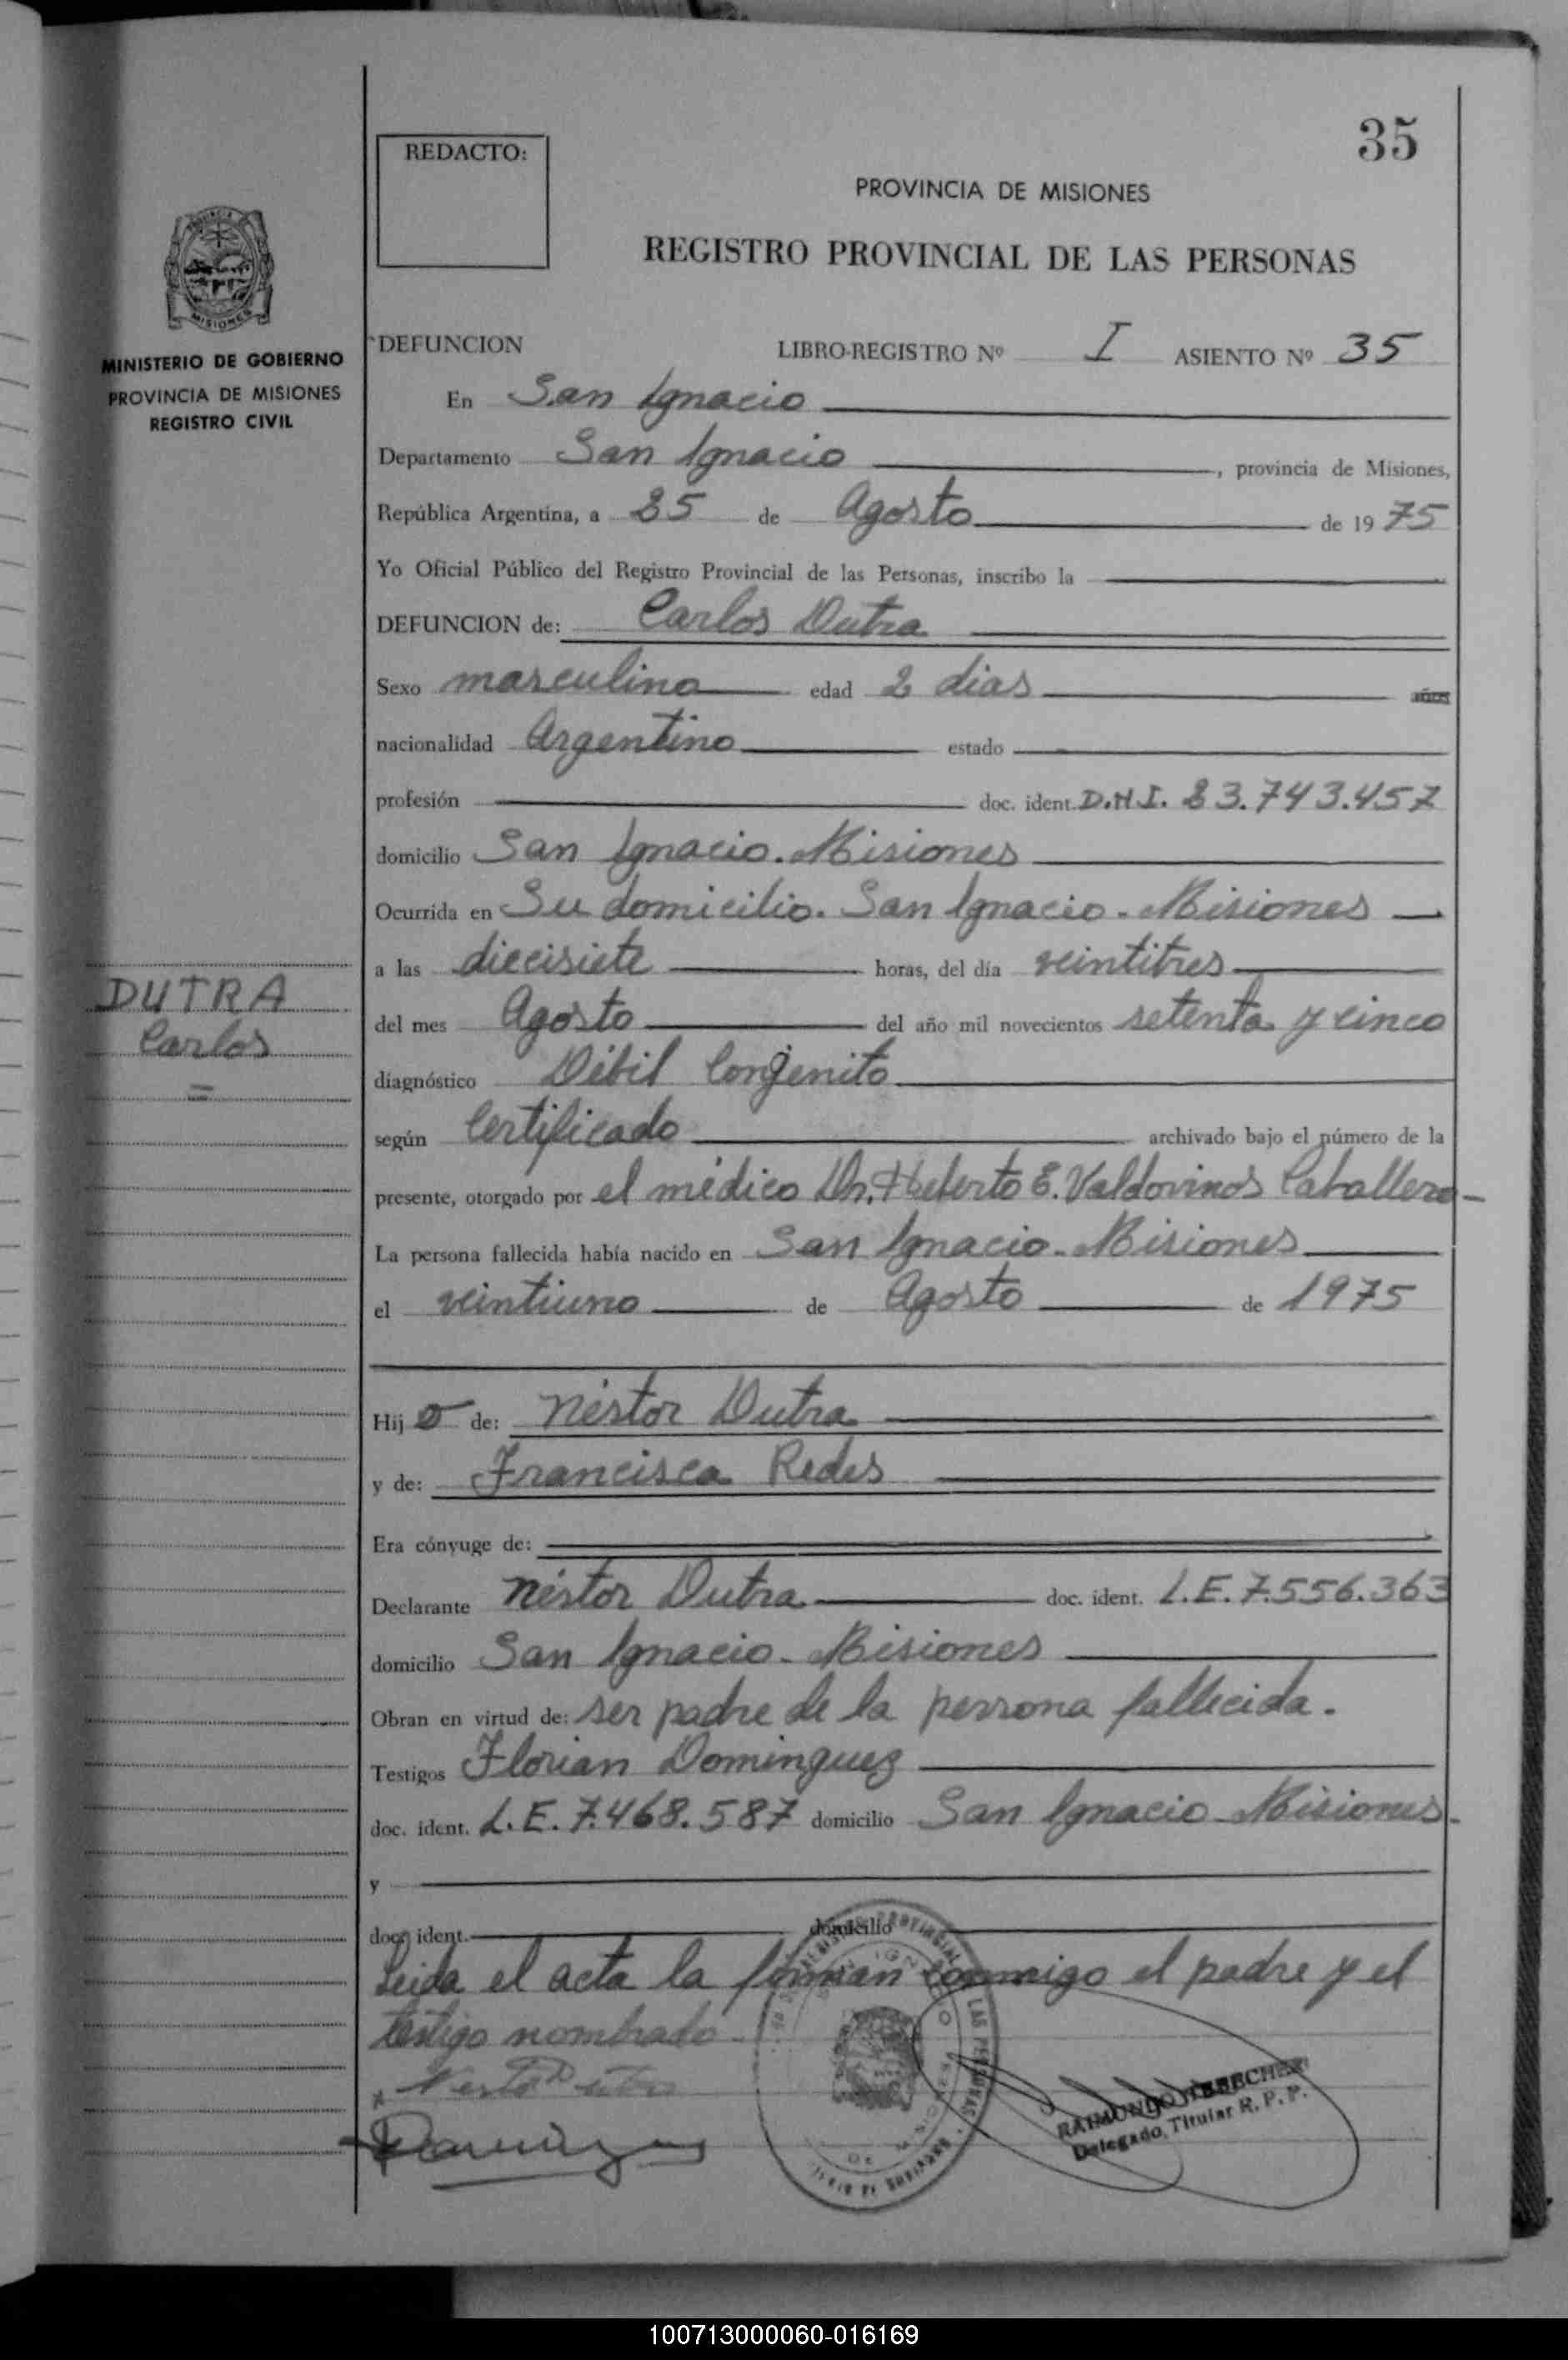 35
REDACTO:
PROVINCIA DE MISIONES
REGISTRO PROVINCIAL DE LAS PERSONAS
MISIONES
MINISTERIO DE GOBIERNO
PROVINCIA DE MISIONES
REGISTRO CIVIL
DEFUNCION LIBRO-REGISTRO Nº I ASIENTO Nº 35
En San Ignacio
Departamento San Ignacio, provincia de Misiones,
República Argentina, a 25 de Agosto de 1975
Yo Oficial Público del Registro Provincial de las Personas, inscribo la
DEFUNCION de: Carlos Dutra
Sexo masculino edad 2 dias años
nacionalidad Argentino estado
profesión doc. ident. D.N.I. 23.743.457
domicilio San Ignacio. Misiones
Ocurrida en Su domicilio. San Ignacio. Misiones
a las diecisiete horas, del día veintitres
del mes Agosto del año mil novecientos setenta y cinco
diagnóstico Débil Congenito
según Certificado archivado bajo el número de la
presente, otorgado por el médico Dr. Heberto E. Valdovinos Caballero
La persona fallecida había nacido en San Ignacio. Misiones
el veintiuno de Agosto de 1975
DUTRA
Carlos
Hij o de: Néstor Dutra
y de: Francisca Redes
Era cónyuge de:
Declarante Néstor Dutra doc. ident. L.E. 7.556.363
domicilio San Ignacio. Misiones
Obran en virtud de: ser padre de la persona fallecida.
Testigos Florian Dominguez
doc. ident. L.E. 7.468.587 domicilio San Ignacio. Misiones.
y
doc. ident. domicilio
Leida el acta la firman conmigo el padre y el
testigo nombrado.
RAIMUNDO
Delegado Titular R. P. P.
100713000060-016169